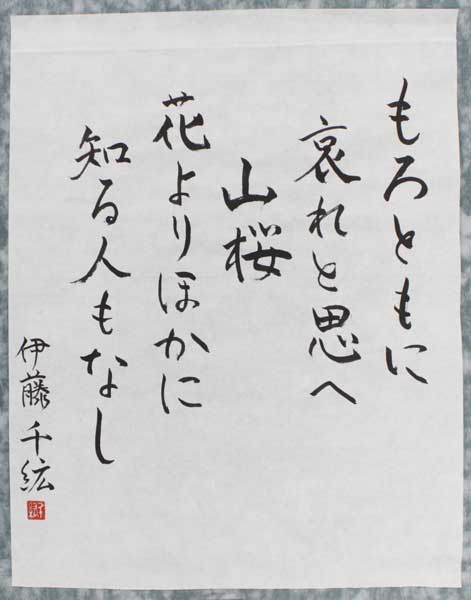 もろともに
哀れと思へ
山桜
花よりほかに
知る人もなし
伊藤千紘